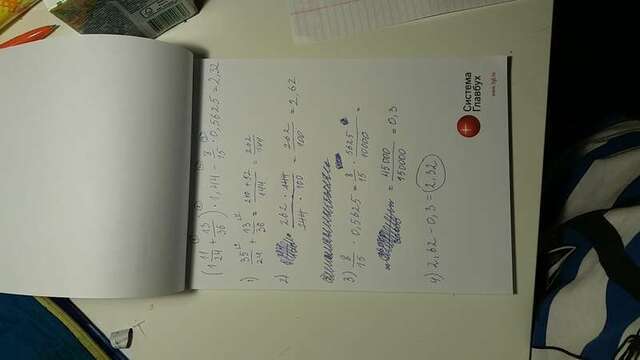 (1 11/24 + 13/36) · 1,44 - 8/15 · 0,5625 = 2,32
1) 35/24 + 13/36 = 210+52/144 = 262/144
2) 262 · 144/144 · 100 = 262/100 = 2,62
3) 8/15 · 0,5625 = 8/15 · 5625/10000 =
= 45000/150000 = 0,3
4) 2,62 - 0,3 = 2,32
Система
Главбух
www.1gl.ru